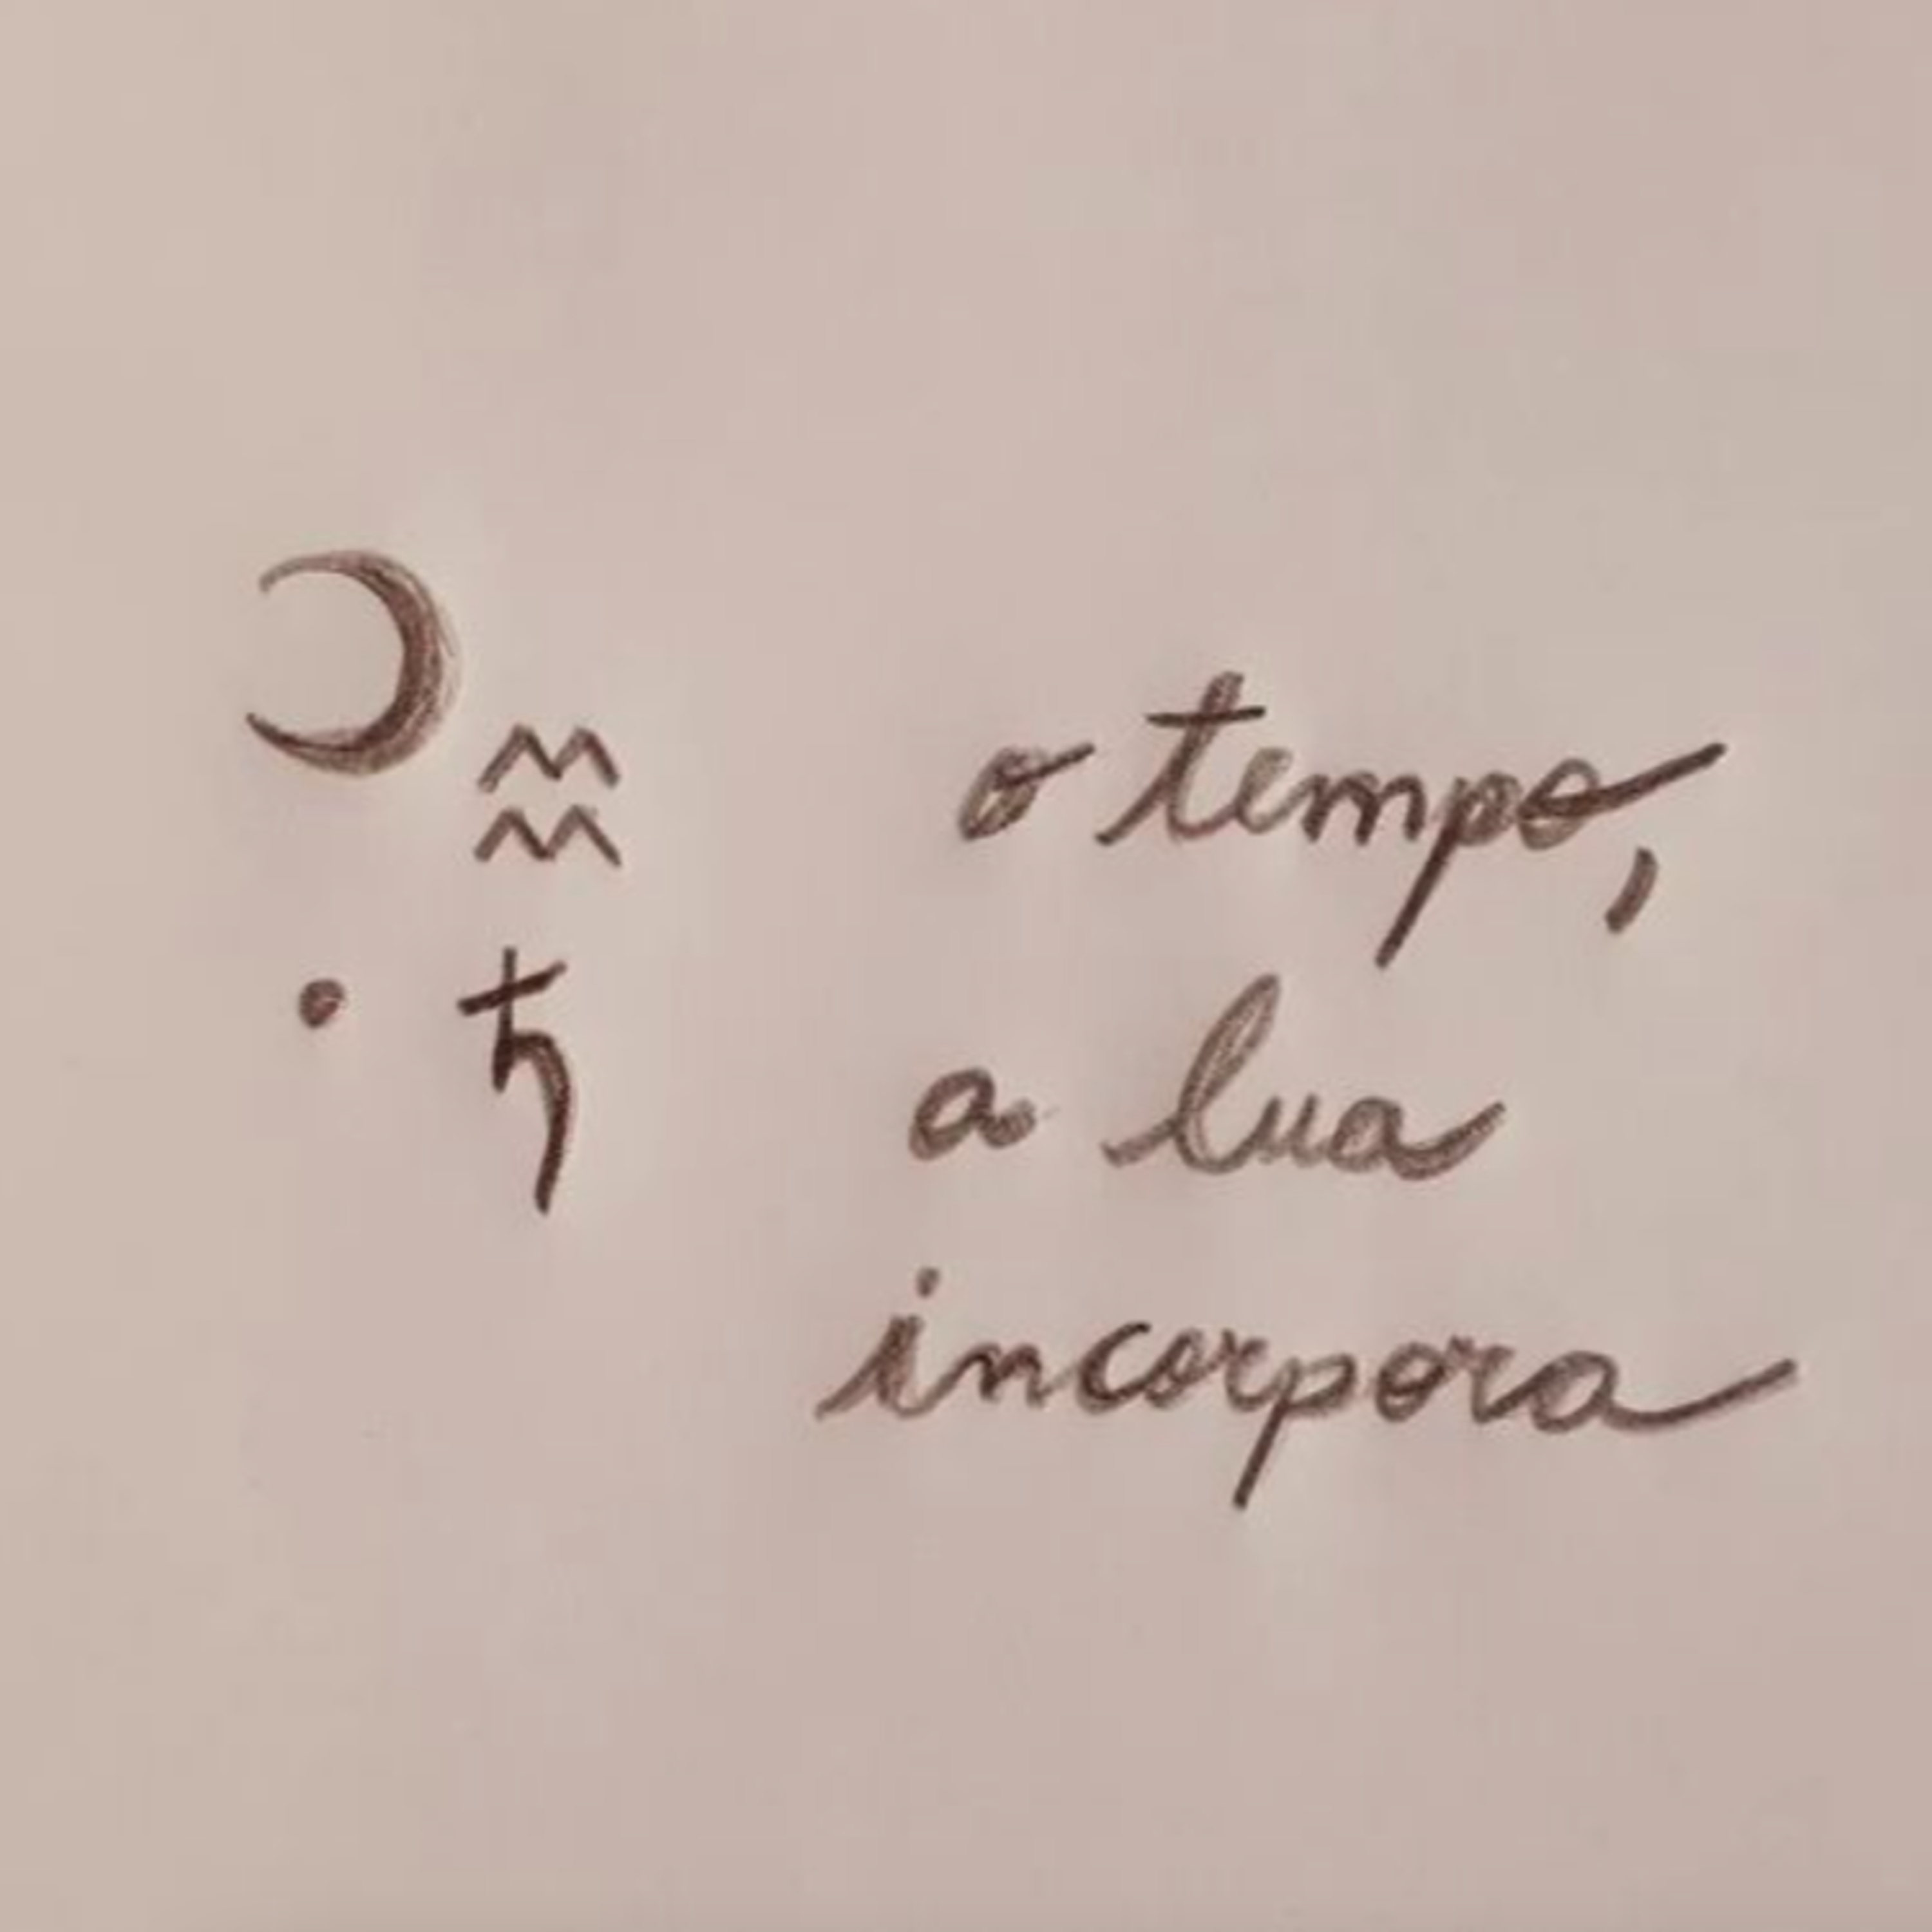 o tempo,
a lua
incorpora